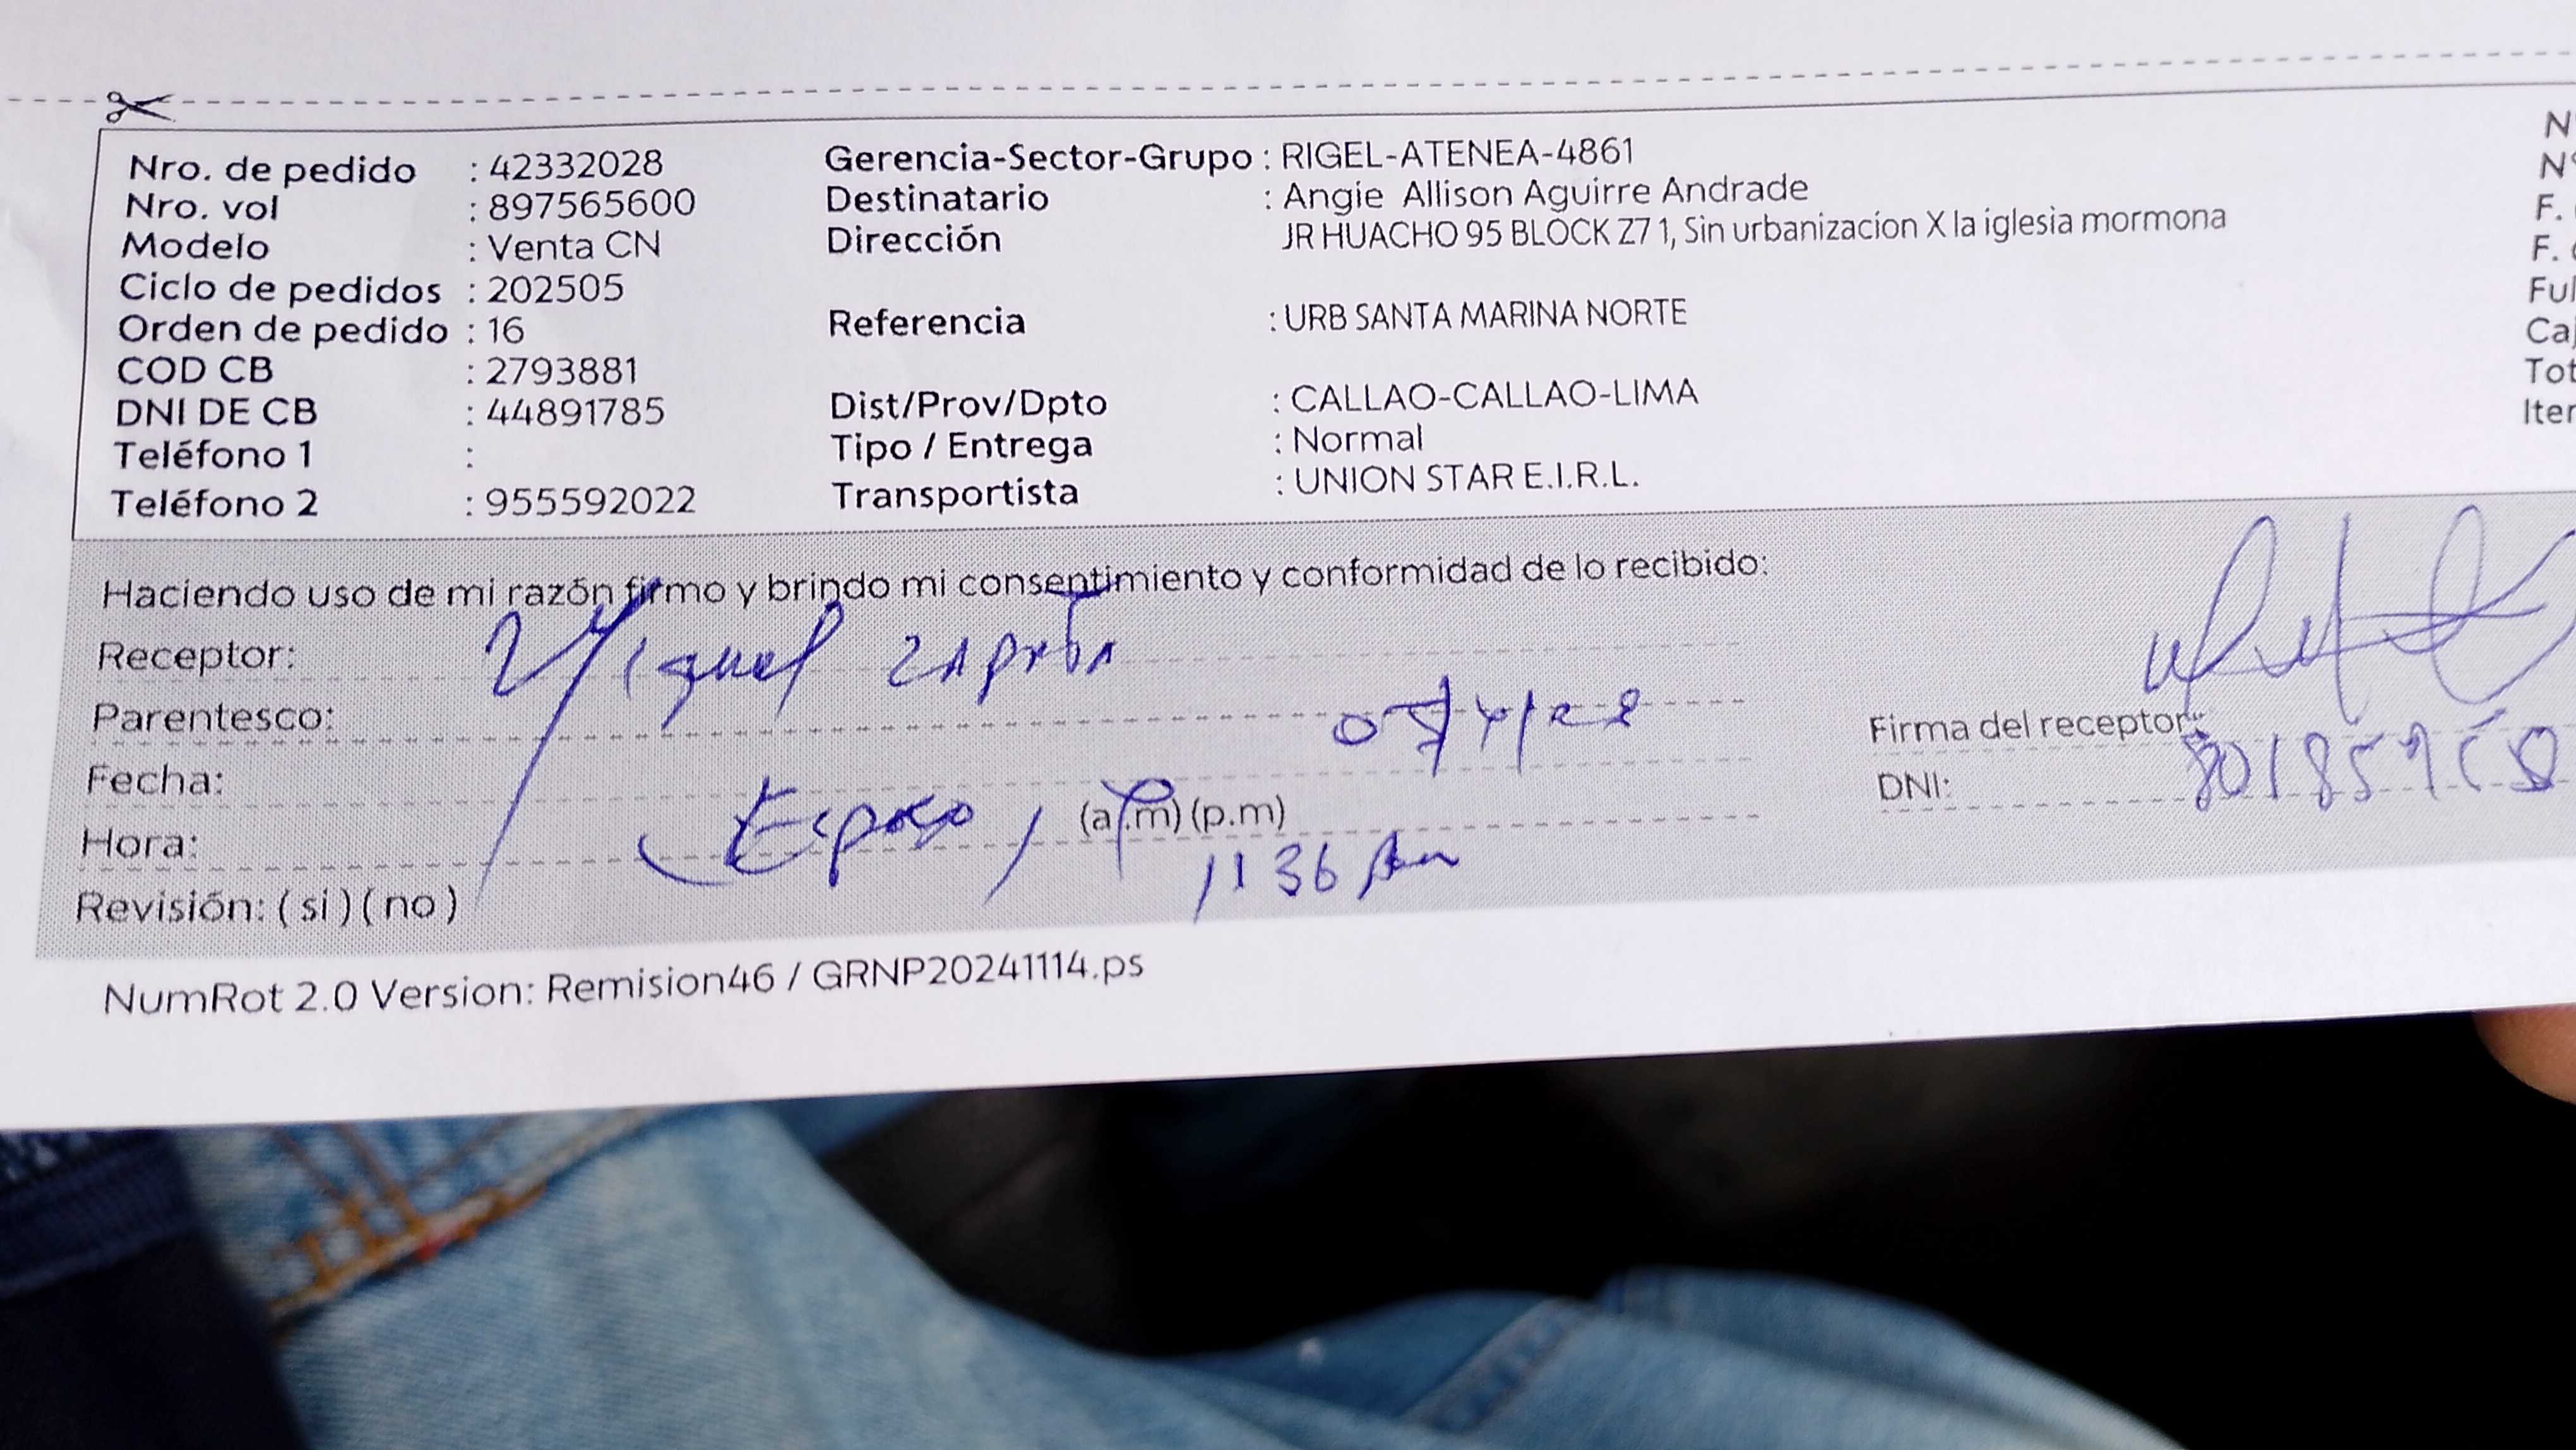 Nro. de pedido : 42332028
Nro. vol : 897565600
Modelo : Venta CN
Ciclo de pedidos : 202505
Orden de pedido : 16
COD CB : 2793881
DNI DE CB : 44891785
Teléfono 1 :
Teléfono 2 : 955592022
Gerencia-Sector-Grupo : RIGEL-ATENEA-4861
Destinatario : Angie Allison Aguirre Andrade
Dirección JR HUACHO 95 BLOCK Z7 1, Sin urbanizacion X la iglesia mormona
Referencia : URB SANTA MARINA NORTE
Dist/Prov/Dpto : CALLAO-CALLAO-LIMA
Tipo / Entrega : Normal
Transportista : UNION STAR E.I.R.L.
N
N°
F.
F.
Ful
Caj
Tot
Iter
Haciendo uso de mi razón firmo y brindo mi consentimiento y conformidad de lo recibido:
Receptor: Miguel Zapata
Parentesco:
Fecha:
Esposo
Hora: (a.m) (p.m)
11 36 Am
Revisión: ( si ) ( no )
Firma del receptor:
DNI:
NumRot 2.0 Version: Remision46 / GRNP20241114.ps